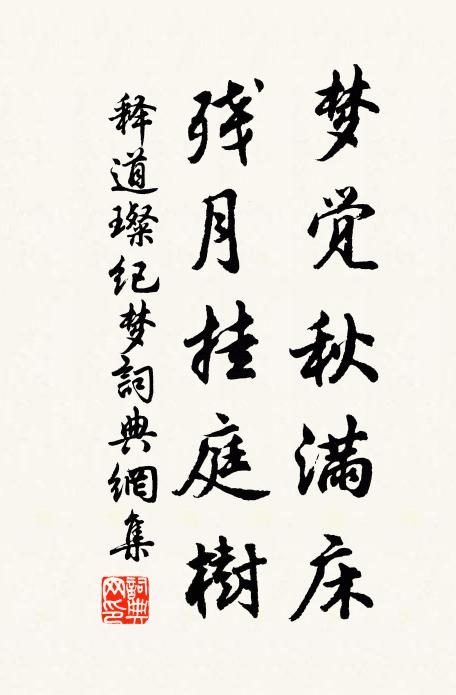 梦觉秋满床
残月挂庭樹
释道璨纪梦詞典網集
詞典
网印